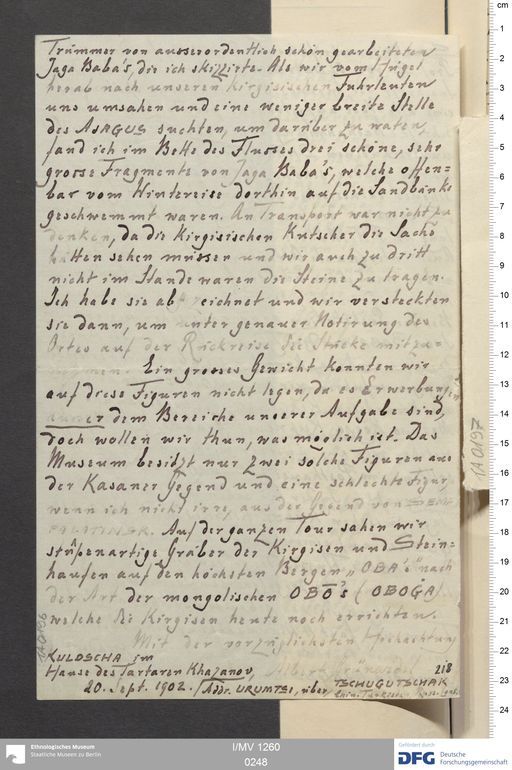 Trümmer von ausserordentlich schön gearbeiteten
Jaga Baba's, die ich skizzirte. Als wir vom Hügel
herab nach unseren kirgisischen Fuhrleuten
uns umsahen und eine weniger breite Stelle
des AJAGUS suchten, um darüber zu waten,
fand ich im Bette des Flusses drei schöne, sehr
grosse Fragmente von Jaga Baba's, welche offen=
bar vom Wintereise dorthin auf die Sandbänke
geschwemmt waren. An Transport war nicht zu
denken, da die kirgisischen Kutscher die Sache
hätten sehen müssen und wir auch zu dritt
nicht im Stande waren die Steine zu tragen.
Ich habe sie ab eichnet und wir versteckten
sie dann, um unter genauer Notirung des
Ortes auf der Rückreise die Stücke mitzu=
Ein grosses Gewicht konnten wir
auf diese Figuren nicht legen, da es Erwerbungen
ausser dem Bereiche unserer Aufgabe sind,
doch wollen wir thun, was möglich ist. Das
Museum besitzt nur zwei solche Figuren aus
der Kasaner Gegend und eine schlechte Figur
wenn ich nicht irre, aus der Gegend von SEMI
PALATINSK. Auf der ganzen Tour sahen wir
stupenartige Gräber der Kirgisen und Stein=
haufen auf den höchsten Bergen „OBA's" nach
der Art der mongolischen OBŌ's (OBOĠA)
welche die Kirgisen heute noch errichten.
Mit der vorzüglichsten Hochachtung
KULDSCHA im
Hause des Tartaren Khazanov, Albert Grünwedel
218
20. Sept. 1902. / Addr. URUMTSI, über TSCHUGUTSCHAK
1A0196
1A0197
cm
1
2
3
4
5
6
7
8
9
10
11
12
13
14
15
16
17
18
19
20
21
22
23
24
Ethnologisches Museum
Staatliche Museen zu Berlin
I/MV 1260
0248
Gefördert durch
DFG Deutsche
Forschungsgemeinschaft